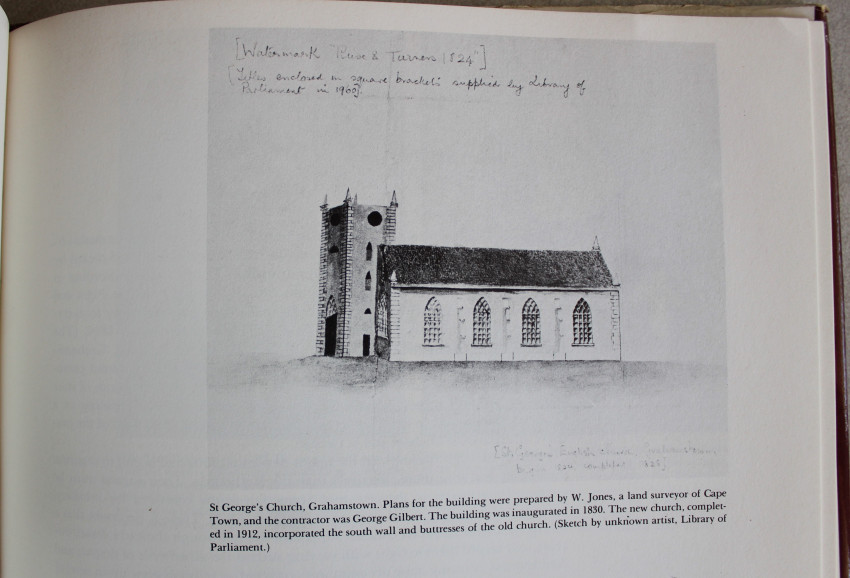 [Watermark Ruse & Turners 1824"]
[Titles enclosed in square brackets supplied by Library of
Parliament in 1960].
[St. George's English church, Grahamstown
St George's Church, Grahamstown. Plans for the building were prepared by W. Jones, a land surveyor of Cape
Town, and the contractor was George Gilbert. The building was inaugurated in 1830. The new church, complet-
ed in 1912, incorporated the south wall and buttresses of the old church. (Sketch by unknown artist, Library of
Parliament.)